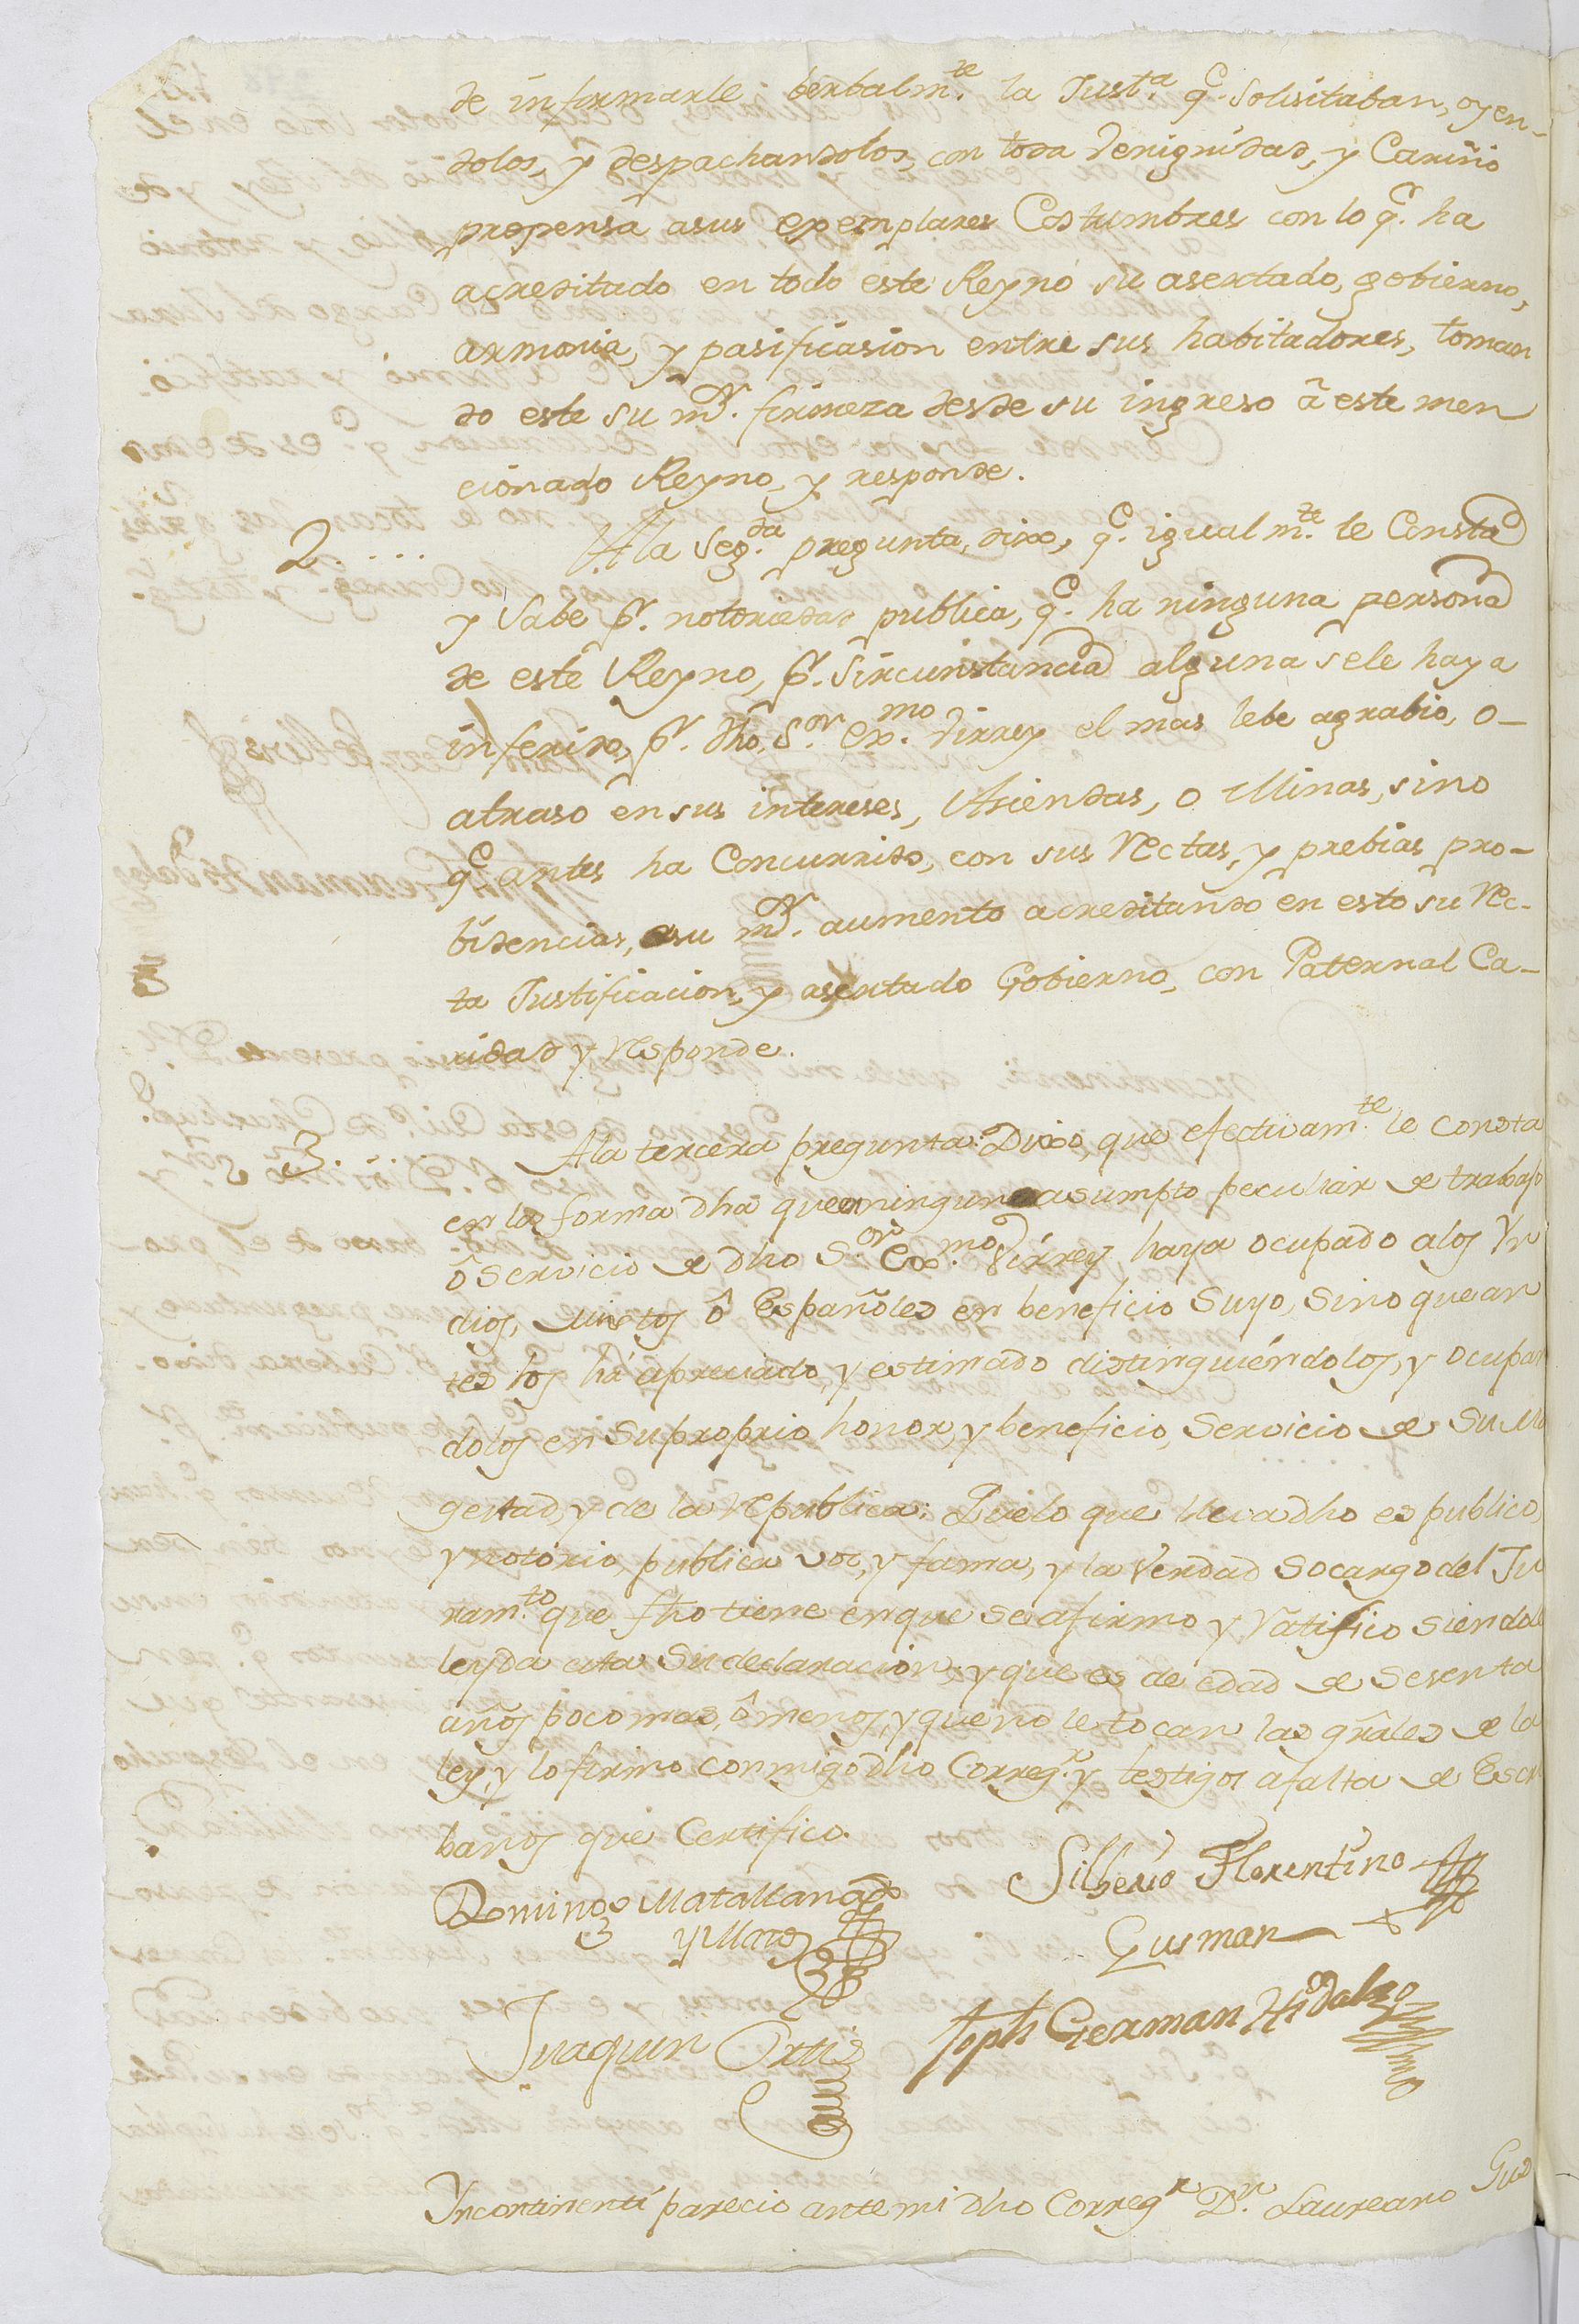 de informarle berbalm.te la Just.a q.e Solisitaban, oyen-
dolos, y despachandolos, con toda Venignidad, y Cariño
propensa asus exemplares Costumbres con lo q.e ha
acreditado en todo este Reyno su asertado, gobierno,
armonia, y pasificasion entre sus habitadores, toman
do este su m.r firmeza desde su ingreso á este men
cionado Reyno, y responde.
2.... Ala Seg.da pregunta, dixo, q.e igualm.te le Consta
y Sabe p.r notoriedad publica, q.e ha ninguna persona
de este Reyno, p.r Sircunstancia alguna sele haya
inferido, p.r dho, S.or Ex.mo Virrey el mas lebe agrabio, o-
atraso en sus intereses, Asiendas, o Minas, sino
q.e antes ha Concurrido, con sus Rectas, y prebias pro-
bidencias, asu m.r aumento acreditando en esto su Rec-
ta Justificacion, y asertado Gobierno, con Paternal Ca-
ridad y responde.
3... Ala tercera pregunta: Dixo, que efectivam.te le consta
en la forma dha que aningun asumpto peculiar de trabajo
ô servicio de dho S.or Ex.mo Virrey haya ocupado alos Yn
dios, Mistos ô Españoles en beneficio suyo, sino que an
tes los há apreciado, y estimado distinguiéndolos, y ocupan
dolos en su proprio honor, y beneficio, servicio de Su Ma
gestad, y de la Republica: Que lo que lleva dho es publico,
y notorio, publica vos, y fama, y la Verdad so cargo del Ju
ram.to que fho tiene en que se afirmo y Ratifico siendole
leyda esta su declaracion, y que es de edad de sesenta
años poco mas, ô menos, y que no le tocan las grâles de la
ley, y lo firmo conmigo dho Correg.r y testigos afalta de Escri
banos que Certifico.
Domingo Matallana
y Maros
Silberio Florentino
Gusman
Juaquin Ortis
Joph German Hidalgo
Yncontinenti parecio ante mi dho Correg.r D.n Laureano Gus